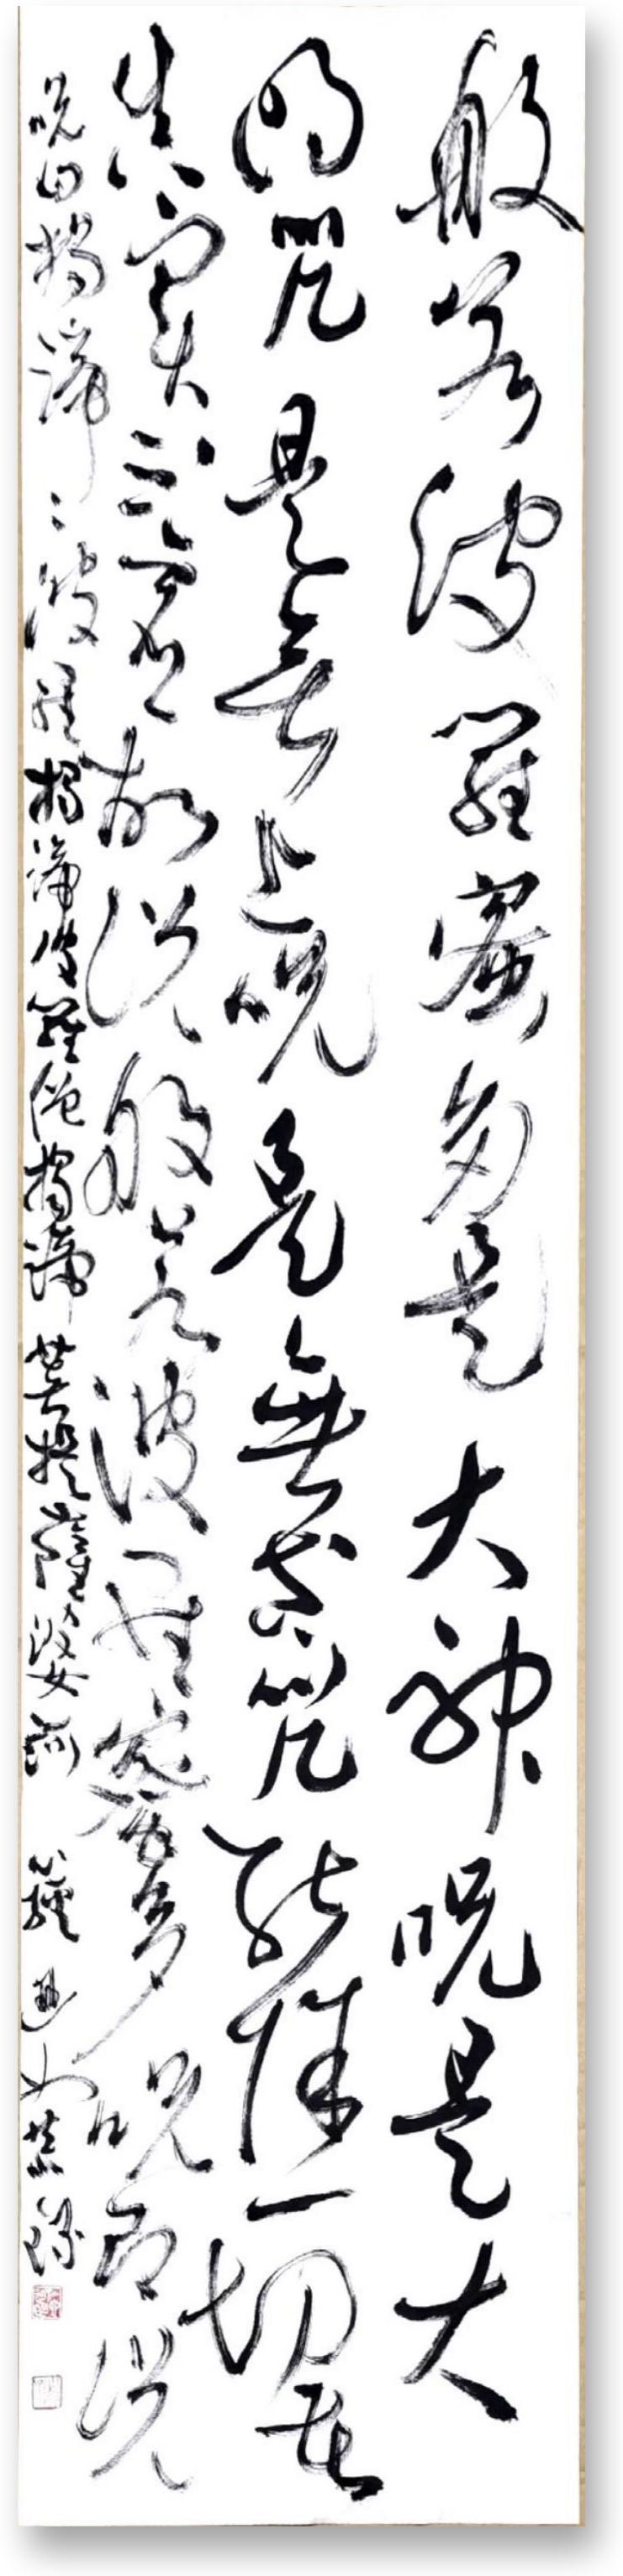 般若波羅蜜多是大神呪是大
明咒是無上呪是無等々咒能除一切苦
真實不虚故説般若波羅蜜多呪即説
呪曰揭諦々波羅揭諦波羅僧揭諦菩提薩婆訶